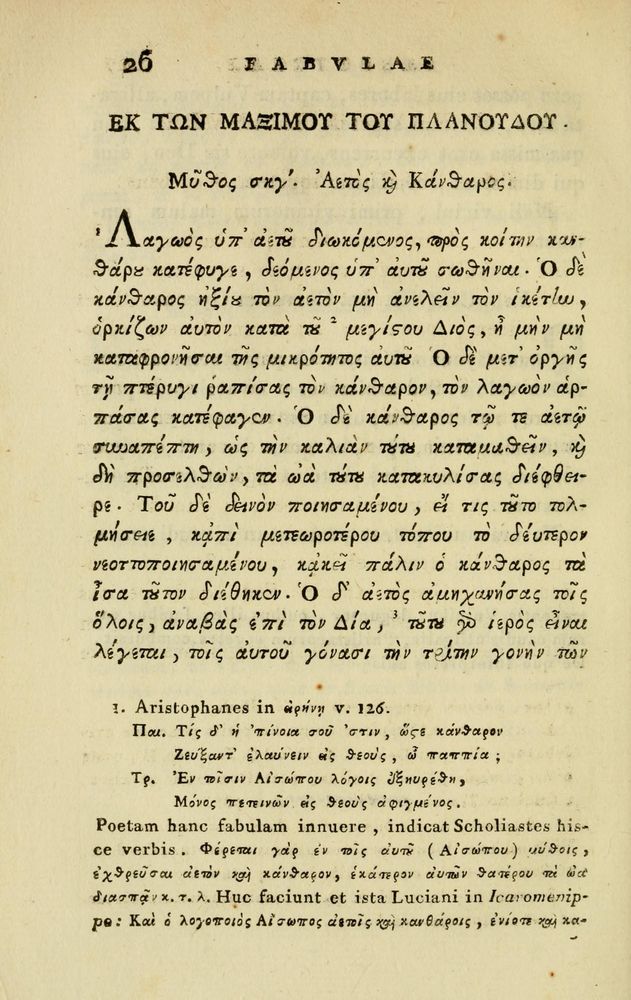 26 FABVLAE
ΕΚ ΤΩΝ ΜΑΞΙΜΟΥ ΤΟΥ ΠΛΑΝΟΥΔΟΥ.
Μῦθος σκγʹ. Ἀετὸς καὶ Κάνθαρος.
¹Λαγωὸς ὑπ' ἀετοῦ διωκόμενος, πρὸς κοίτην καν-
θάρου κατέφυγε, δεόμενος ὑπ' αὐτοῦ σωθῆναι. Ὁ δὲ
κάνθαρος ἠξίου τὸν ἀετὸν μὴ ἀνελεῖν τὸν ἱκέτην,
ὁρκίζων αὐτὸν κατὰ τοῦ ² μεγίστου Διὸς, ἦ μὴν μὴ
καταφρονῆσαι τῆς μικρότητος αὐτοῦ Ὁ δὲ μετ' ὀργῆς
τῇ πτέρυγι ῥαπίσας τὸν κάνθαρον, τὸν λαγωὸν ἁρ-
πάσας κατέφαγεν. Ὁ δὲ κάνθαρος τῷ τε ἀετῷ
συναπέπτη, ὡς τὴν καλιὰν τούτου καταμαθεῖν, καὶ
δὴ προσελθὼν, τὰ ὠὰ τούτου κατακυλίσας διέφθει-
ρε. Τοῦ δὲ δεινὸν ποιησαμένου, εἴ τις τοῦτο τολ-
μήσειε, κᾀπὶ μετεωροτέρου τόπου τὸ δεύτερον
νεοττοποιησαμένου, κᾀκεῖ πάλιν ὁ κάνθαρος τὰ
ἴσα τοῦτον διέθηκεν. Ὁ δ' ἀετὸς ἀμηχανήσας τοῖς
ὅλοις, ἀναβὰς ἐπὶ τὸν Δία, ³ τούτου γὰρ ἱερὸς εἶναι
λέγεται, τοῖς αὐτοῦ γόνασι τὴν τρίτην γονὴν τῶν
1. Aristophanes in εἰρήνῃ v. 126.
Παι. Τίς δ' ἡ 'πίνοια σοῦ 'στιν, ὥστε κάνθαρον
Ζεύξαντ' ἐλαύνειν εἰς θεοὺς, ὦ παππία;
Τρ. Ἐν τοῖσιν Αἰσώπου λόγοις ἐξηυρέθη,
Μόνος πετεινῶν εἰς θεοὺς ἀφιγμένος.
Poetam hanc fabulam innuere, indicat Scholiastes his-
ce verbis. Φέρεται γὰρ ἐν τοῖς αὐτοῦ (Αἰσώπου) μύθοις,
ἐχθρεῦσαι ἀετὸν καὶ κάνθαρον, ἑκάτερον αὐτῶν θατέρου τὰ ὠὰ
διασπᾷν κ. τ. λ. Huc faciunt et ista Luciani in Icaromenip-
pe: Καὶ ὁ λογοποιὸς Αἴσωπος ἀετοῖς καὶ κανθάροις, ἐνίοτε καὶ κα-